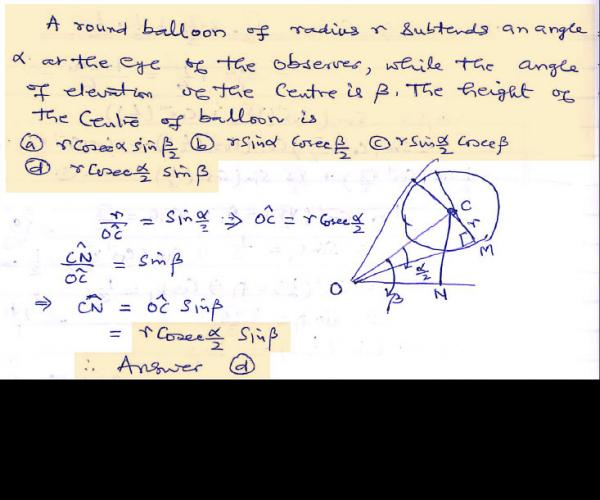 A round balloon of radius r subtends an angle
α at the eye of the observer, while the angle
of elevation of the centre is β. The height of
the Centre of balloon is
(a) r Cosec α sin β/2 (b) r Sin α Cosec β/2 (c) r Sin α/2 Cosec β
(d) r Cosec α/2 Sin β
r/OĈ = Sin α/2 ⇒ OĈ = r Cosec α/2
CN̂/OĈ = Sin β
⇒ CN̂ = OĈ Sin β
= r Cosec α/2 Sin β
∴ Answer (d)
C
r
M
α/2
O
β
N